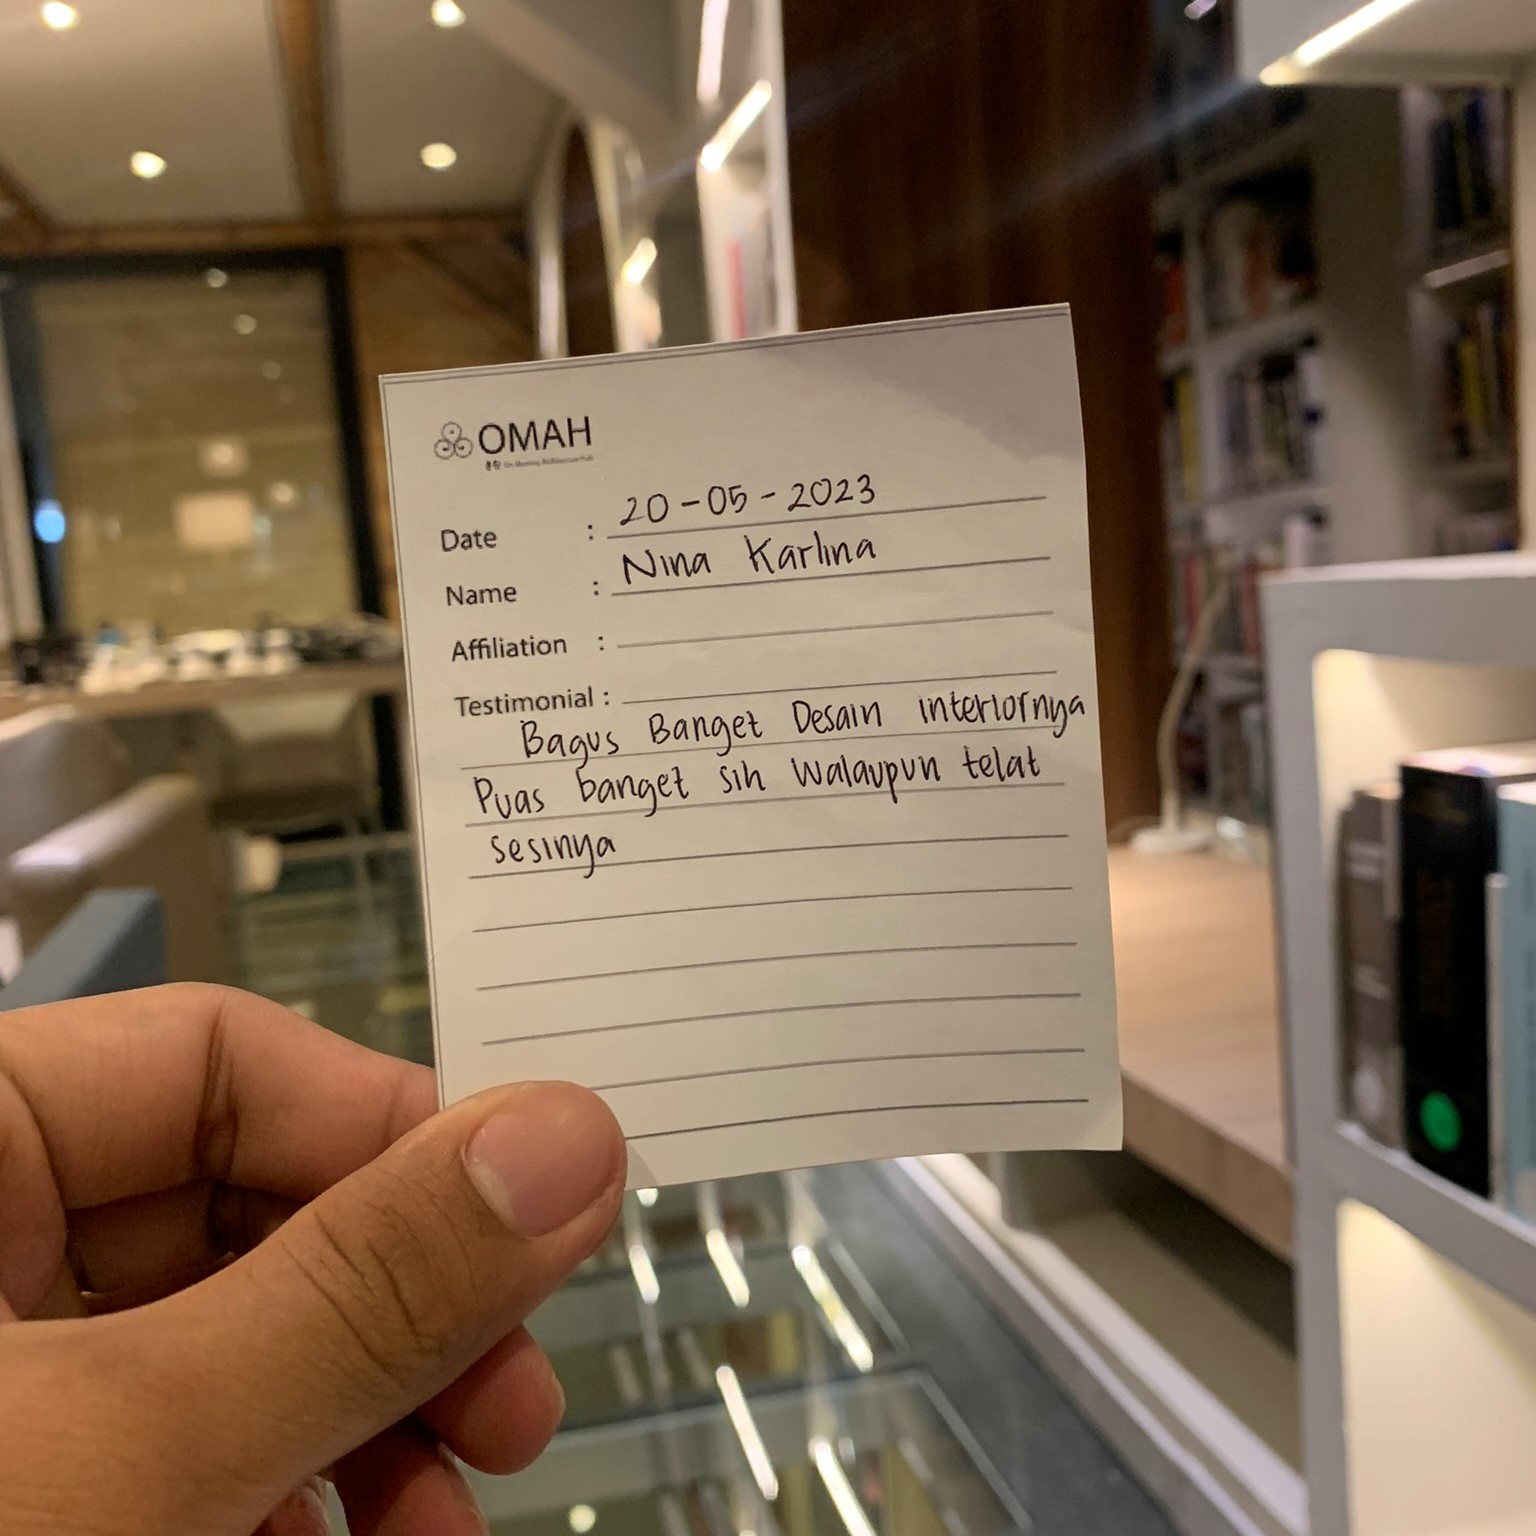 OMAH
Date : 20-05-2023
Name : Nina Karlina
Affiliation :
Testimonial :
Bagus Banget Desain interiornya
Puas banget sih walaupun telat
sesinya